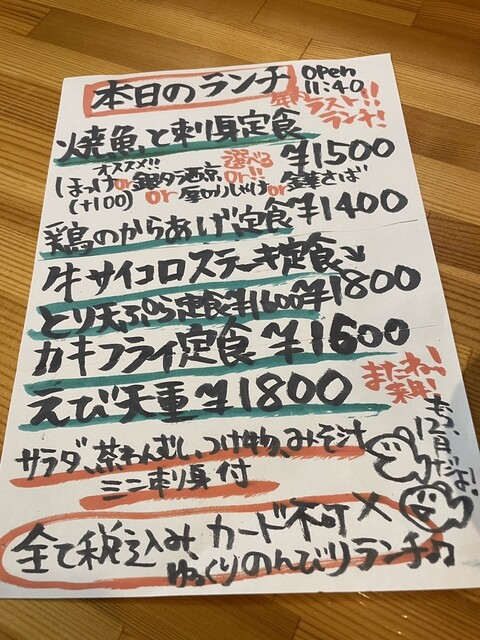 本日のランチ
Open
11:40
年内ラスト!!
ランチ!
焼魚と刺身定食
¥1500
オススメ!!
選べる
or!!
ほっけor銀ダラ西京or厚切りしゃけor金華さば
(+100)
鶏のからあげ定食¥1400
牛サイコロステーキ定食↘
¥1800
とり天ぷら定食¥1600
カキフライ定食¥1600
えび天重¥1800
またねー!
来年!
もう、
12月だよ!
サラダ、茶わんむし、つけ物、みそ汁
ミニ刺身付
全て税込み、カード不可×
ゆっくりのんびりランチ♫